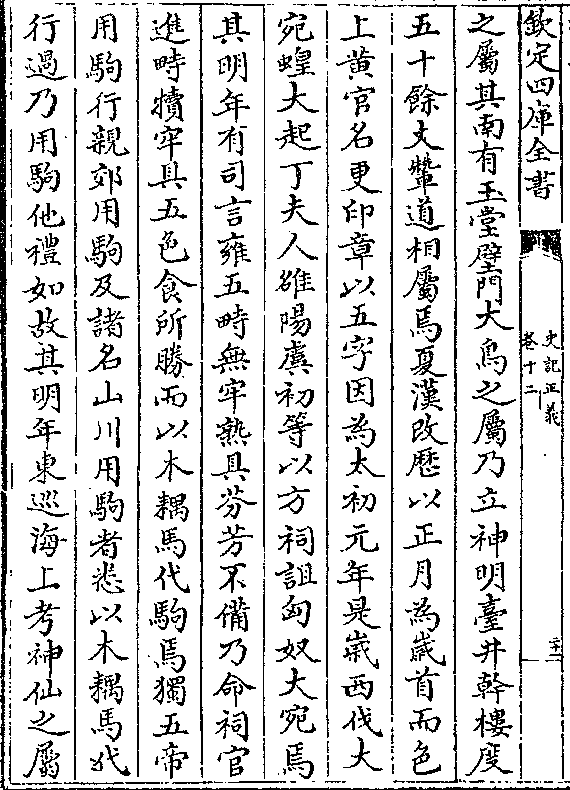 欽定四庫全書
史記正義
卷十二
二十二
之屬其南有玉堂璧門大鳥之屬乃立神明臺井幹樓度
五十餘丈輦道相屬焉夏漢改厯以正月為嵗首而色
上黄官名更印章以五字因為太初元年是嵗西伐大
宛蝗大起丁夫人雒陽虞初等以方祠詛匈奴大宛焉
其明年有司言雍五畤無牢熟具芬芳不備乃命祠官
進畤犢牢具五色食所勝而以木耦馬代駒焉獨五帝
用駒行親郊用駒及諸名山川用駒者悉以木耦馬代
行過乃用駒他禮如故其明年東巡海上考神仙之屬